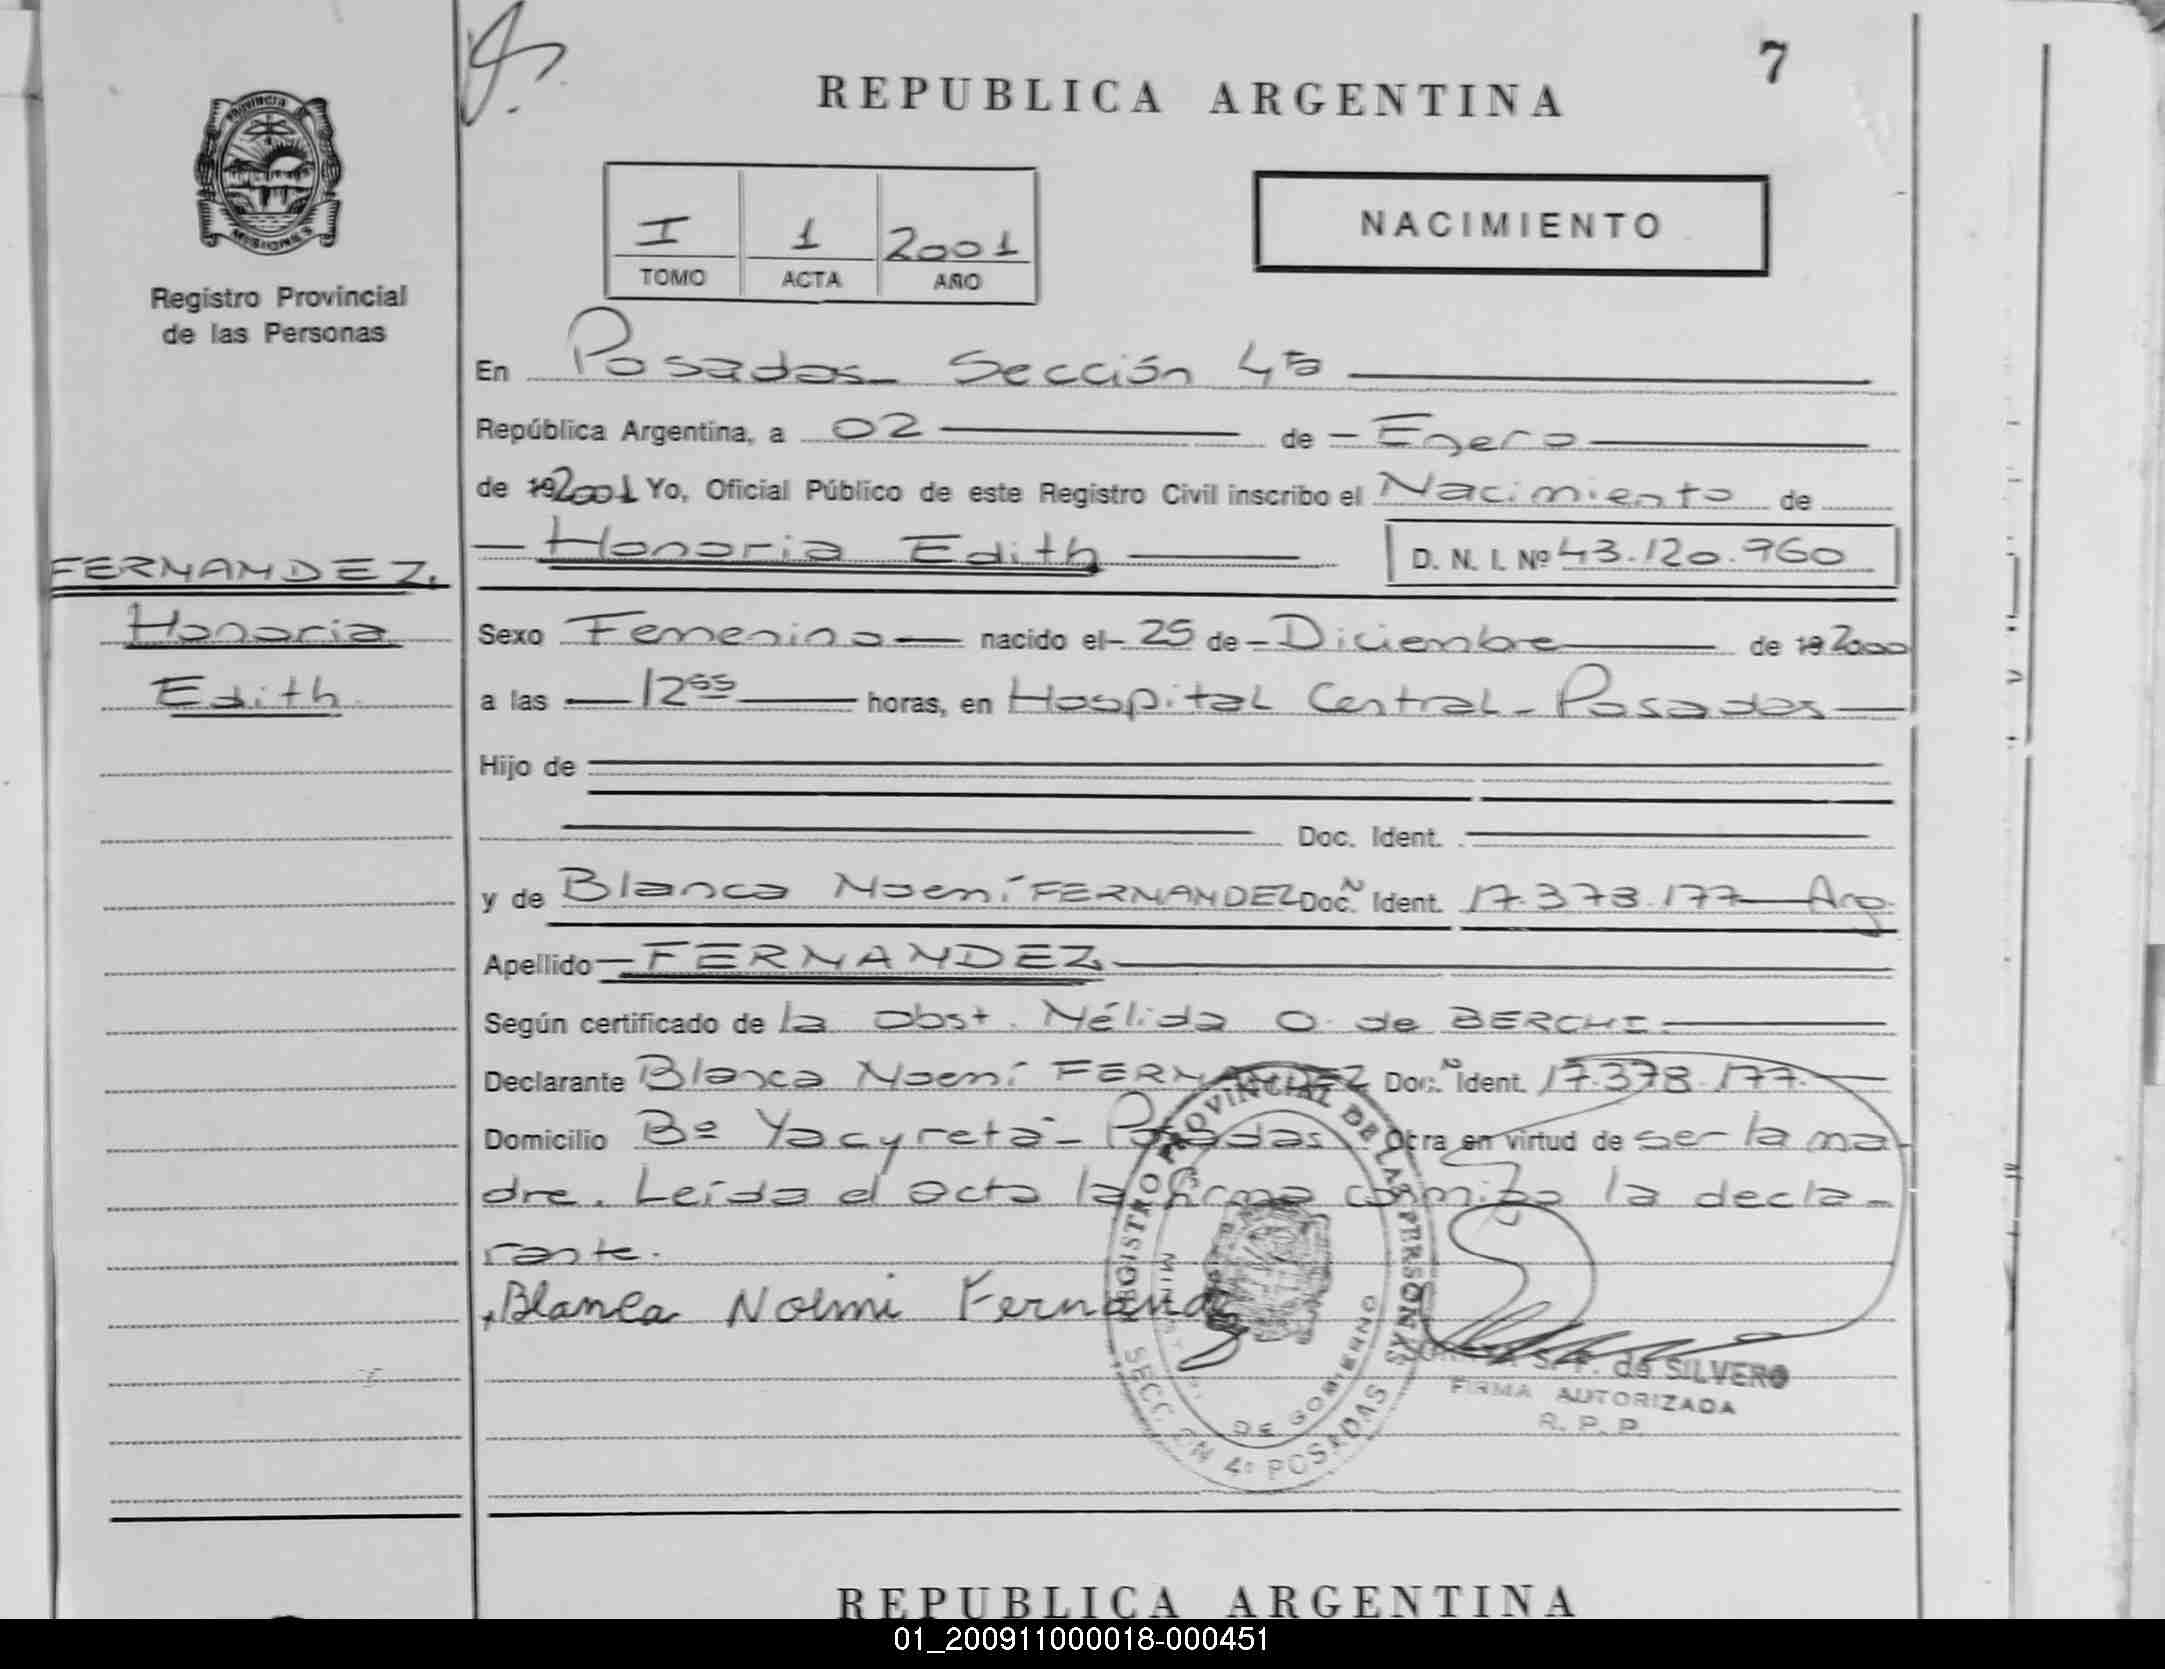 7
REPUBLICA ARGENTINA
PROVINCIA
MISIONES
Registro Provincial
de las Personas
I 1 2001
TOMO ACTA AÑO
NACIMIENTO
En Posadas - Sección 4ta
República Argentina, a 02 de - Enero
de 19 2001 Yo, Oficial Público de este Registro Civil inscribo el Nacimiento de
- Honoria Edith D. N. I. Nº 43.120.960
FERNANDEZ,
Honoria
Edith
Sexo Femenino nacido el - 25 de - Diciembre de 19 2000
a las 12 55 horas, en Hospital Central - Posadas
Hijo de
Doc. Ident.
y de Blanca Noemí FERNANDEZ Doc. Ident. 17.378.177 Arg.
Apellido - FERNANDEZ
Según certificado de la Obst. Nélida O. de BERCHI.
Declarante Blanca Noemí FERNANDEZ Doc. Ident. 17.378.177.
Domicilio Bº Yacyretá - Posadas Obra en virtud de ser la ma-
dre. Leída el acta la firma conmigo la decla-
rante.
Blanca Noemi Fernandez
REGISTRO PROVINCIAL DE LAS PERSONAS
DE GOBIERNO
SECCION 4º POSADAS
S. F. de SILVERO
FIRMA AUTORIZADA
R. P. P.
REPUBLICA ARGENTINA
01_200911000018-000451